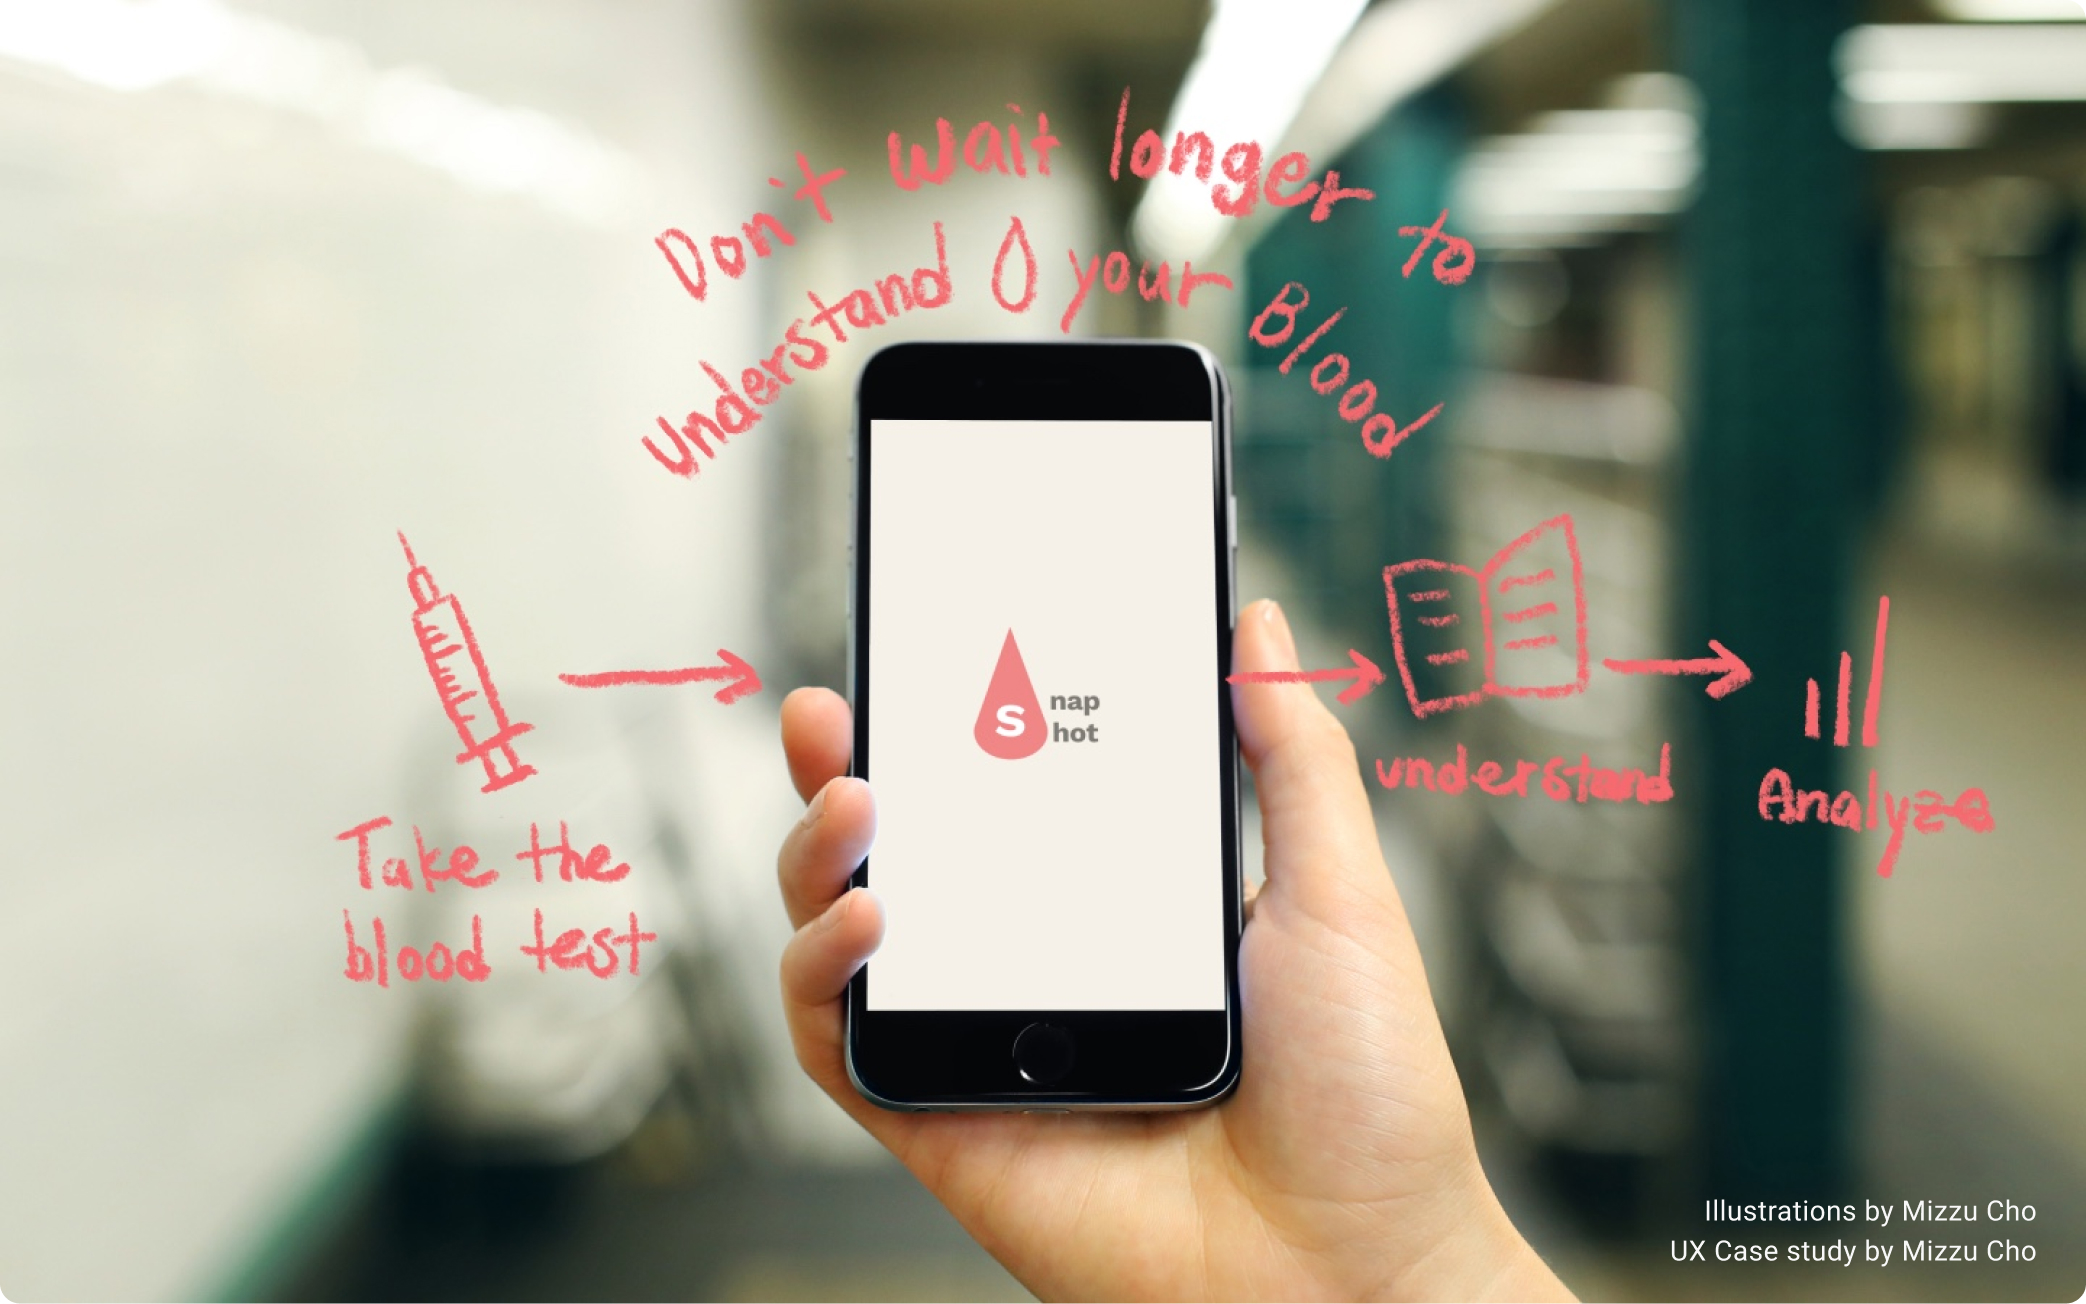 Don't wait longer to
Understand your Blood
Snap
Shot
Take the
blood test
understand
Analyze
Illustrations by Mizzu Cho
UX Case study by Mizzu Cho